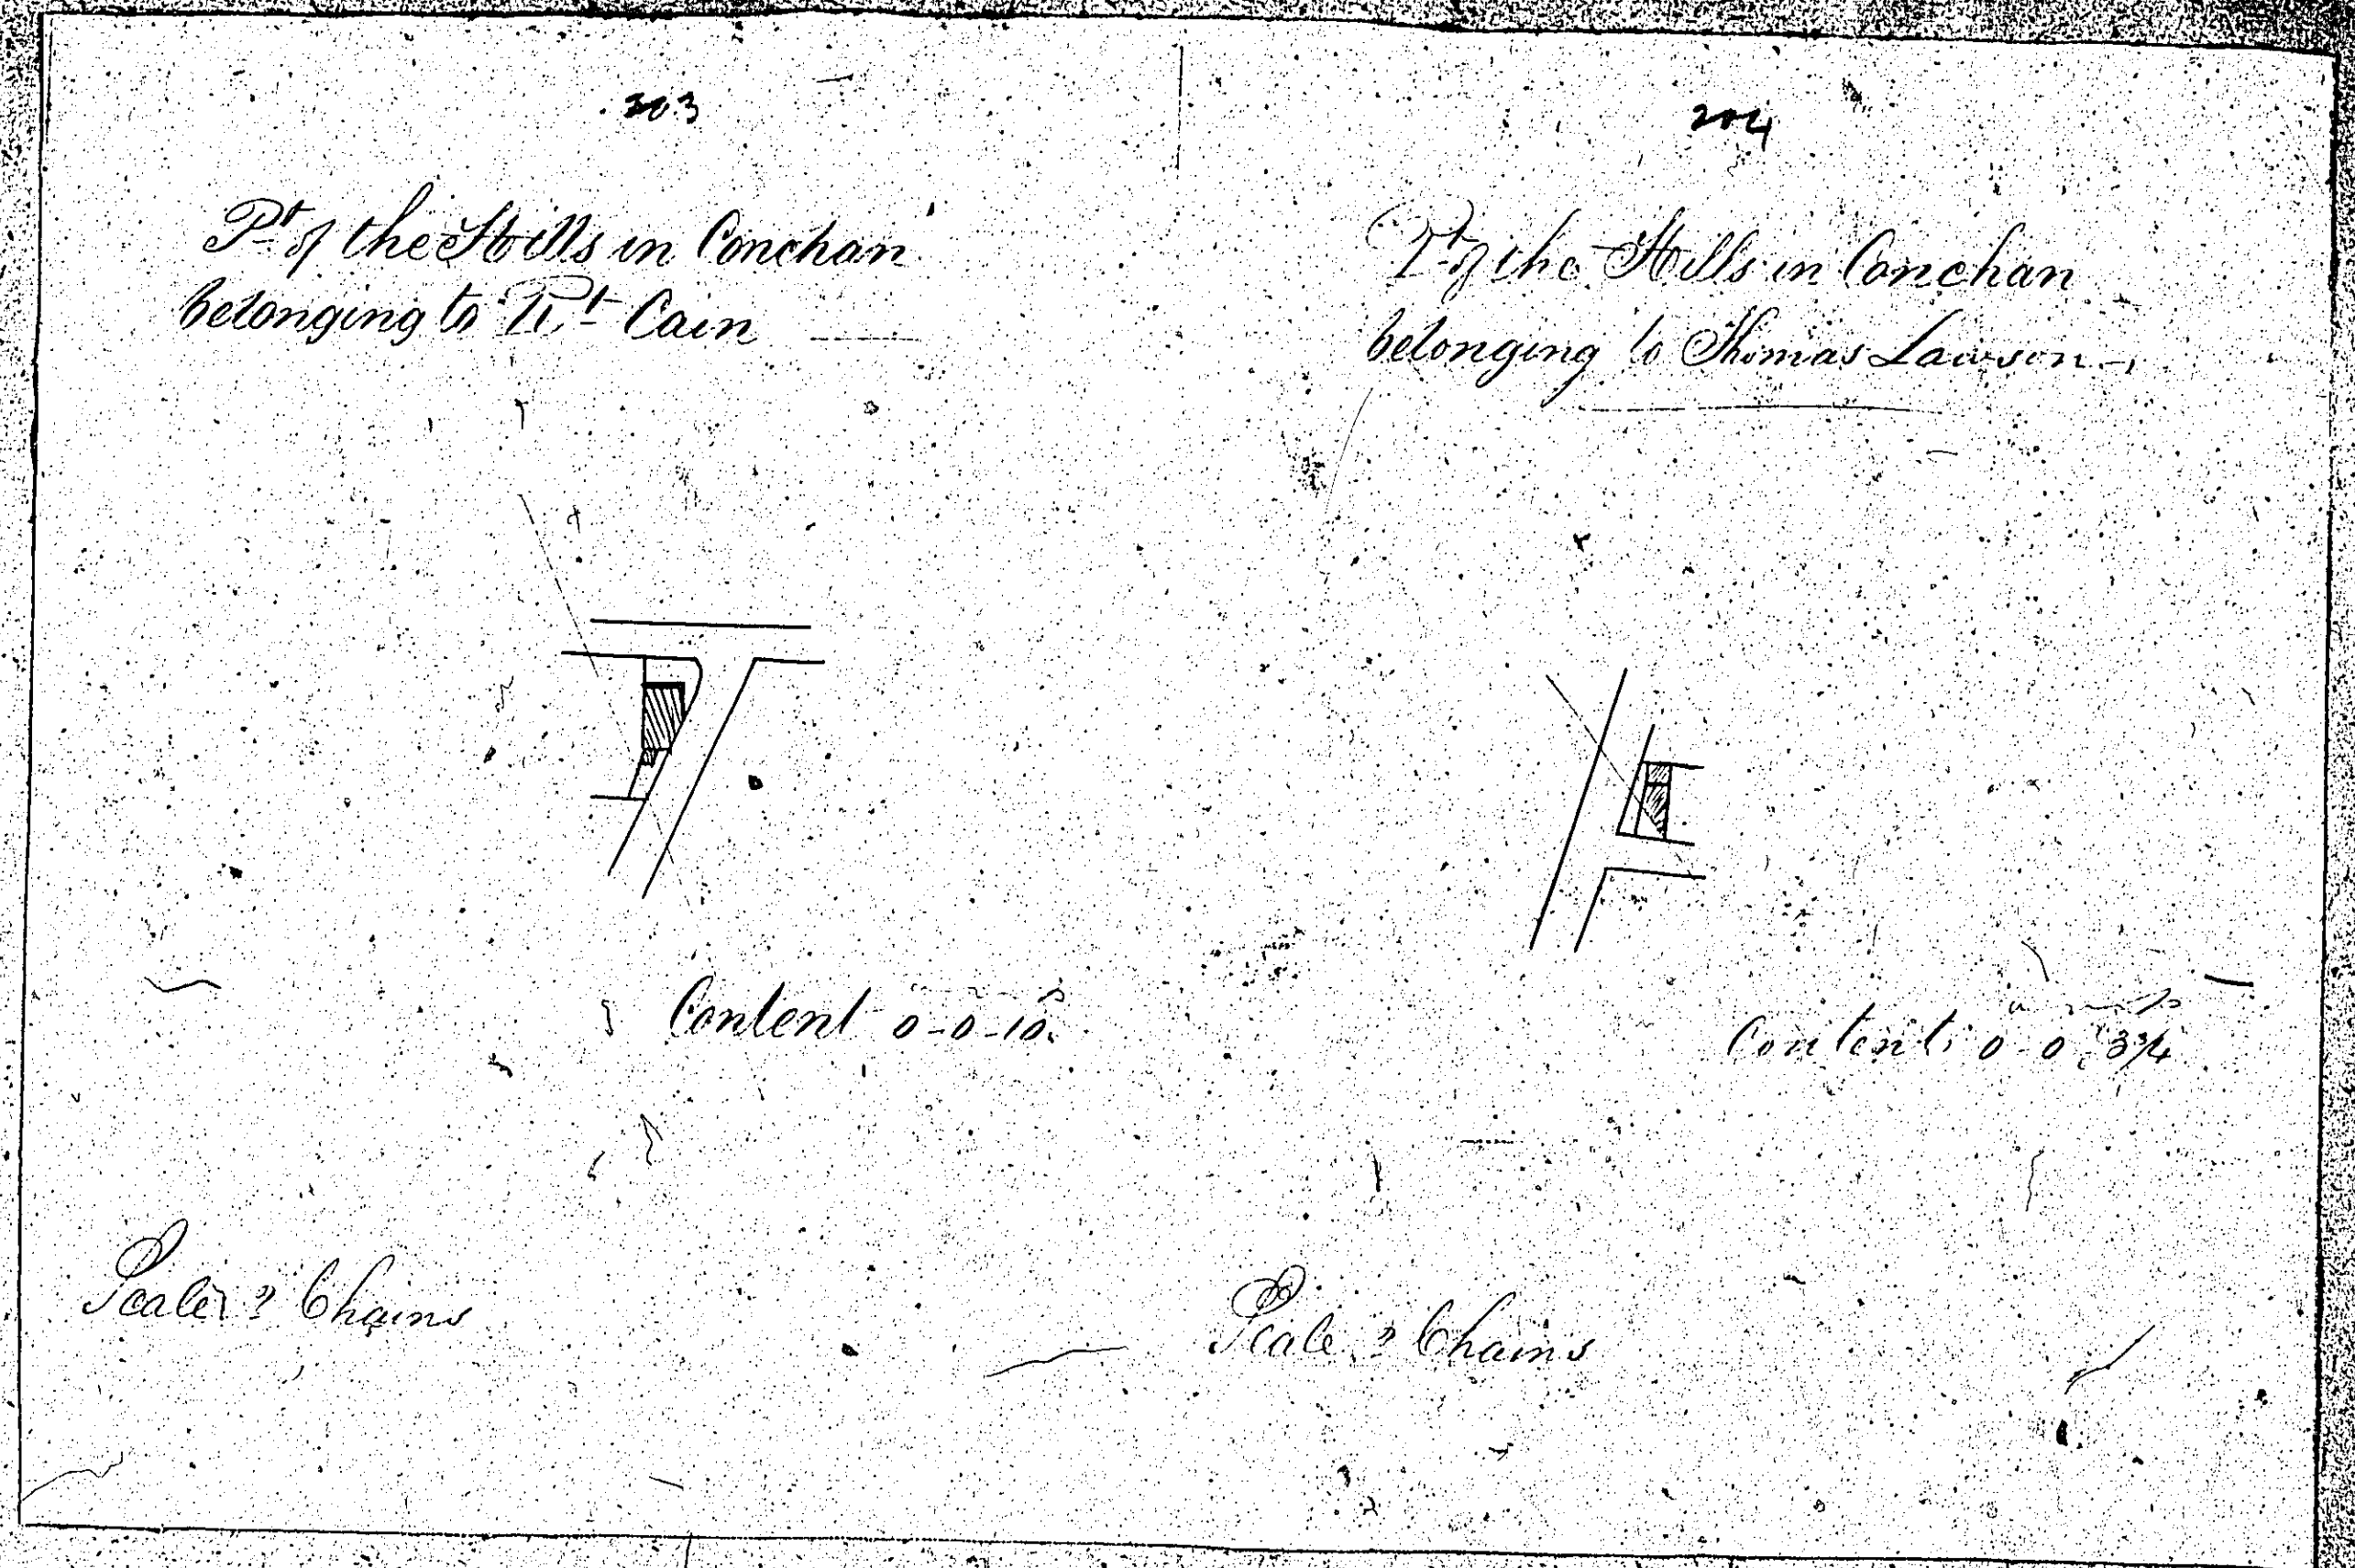 203
Pt. of the Hills in Conchan
belonging to Rt. Cain
Content 0-0-10
Scale 2 Chains
204
Pt. of the Hills in Conchan
belonging to Thomas Lawson
a r p
Content 0-0-3¾
Scale 2 Chains